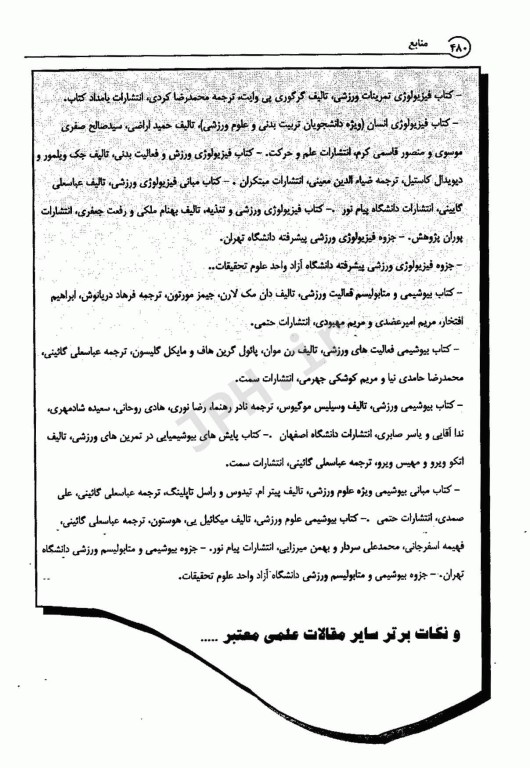 ۴۸۰ منابع
- کتاب فیزیولوژی تمرینات ورزشی، تالیف گرگوری پی وایت، ترجمه محمدرضا کردی، انتشارات بامداد کتاب.
- کتاب فیزیولوژی انسان (ویژه دانشجویان تربیت بدنی و علوم ورزشی)، تالیف حمید اراضی، سیدصالح صفری
موسوی و منصور قاسمی کرم، انتشارات علم و حرکت. - کتاب فیزیولوژی ورزش و فعالیت بدنی، تالیف جک ویلمور و
دیویدال کاستیل، ترجمه ضیاء الدین معینی، انتشارات مبتکران . - کتاب مبانی فیزیولوژی ورزشی، تالیف عباسعلی
گایینی، انتشارات دانشگاه پیام نور .- کتاب فیزیولوژی ورزشی و تغذیه، تالیف بهنام ملکی و رفعت جعفری، انتشارات
پوران پژوهش. - جزوه فیزیولوژی ورزشی پیشرفته دانشگاه تهران.
- جزوه فیزیولوژی ورزشی پیشرفته دانشگاه آزاد واحد علوم تحقیقات..
- کتاب بیوشیمی و متابولیسم فعالیت ورزشی، تالیف دان مک لارن، جیمز مورتون، ترجمه فرهاد دریانوش، ابراهیم
افتخار، مریم امیرعضدی و مریم مهبودی، انتشارات حتمی.
- کتاب بیوشیمی فعالیت های ورزشی، تالیف رن موان، پائول گرین هاف و مایکل گلیسون، ترجمه عباسعلی گائینی،
محمدرضا حامدی نیا و مریم کوشکی جهرمی، انتشارات سمت.
- کتاب بیوشیمی ورزشی، تالیف وسیلیس موگیوس، ترجمه نادر رهنما، رضا نوری، هادی روحانی، سعیده شادمهری،
ندا آقایی و یاسر صابری، انتشارات دانشگاه اصفهان .- کتاب پایش های بیوشیمیایی در تمرین های ورزشی، تالیف
اتکو ویرو و مهیس ویرو، ترجمه عباسعلی گائینی، انتشارات سمت.
- کتاب مبانی بیوشیمی ویژه علوم ورزشی، تالیف پیتر ام. تیدوس و راسل تاپلینگ، ترجمه عباسعلی گائینی، علی
صمدی، انتشارات حتمی .- کتاب بیوشیمی علوم ورزشی، تالیف میکائیل پی، هوستون، ترجمه عباسعلی گائینی،
فهیمه اسفرجانی، محمدعلی سردار و بهمن میرزایی، انتشارات پیام نور. - جزوه بیوشیمی و متابولیسم ورزشی دانشگاه
تهران. - جزوه بیوشیمی و متابولیسم ورزشی دانشگاه آزاد واحد علوم تحقیقات.
و نکات برتر سایر مقالات علمی معتبر .....
JPH.ir